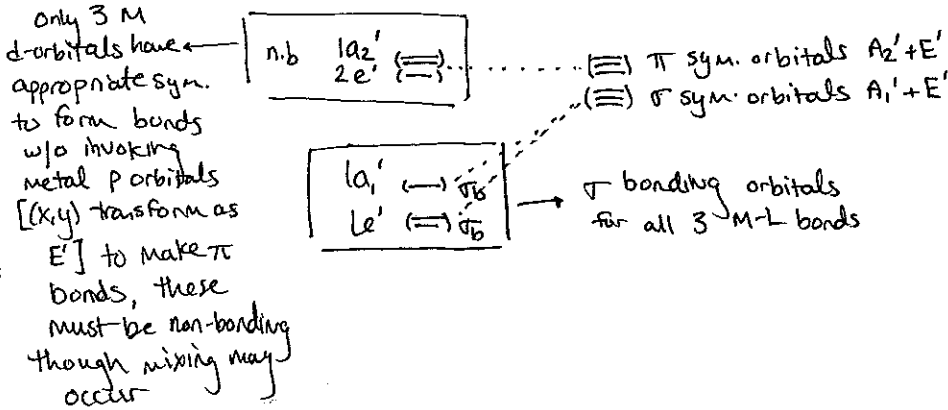 only 3 M
d-orbitals have
appropriate sym.
to form bonds
w/o invoking
metal p orbitals
[(x,y) transform as
E'] to make π
bonds, these
must be non-bonding
though mixing may
occur
n.b 1a₂'
2e'
π sym. orbitals A₂'+E'
σ sym. orbitals A₁'+E'
1a₁' σb
1e' σb
σ bonding orbitals
for all 3 M-L bonds